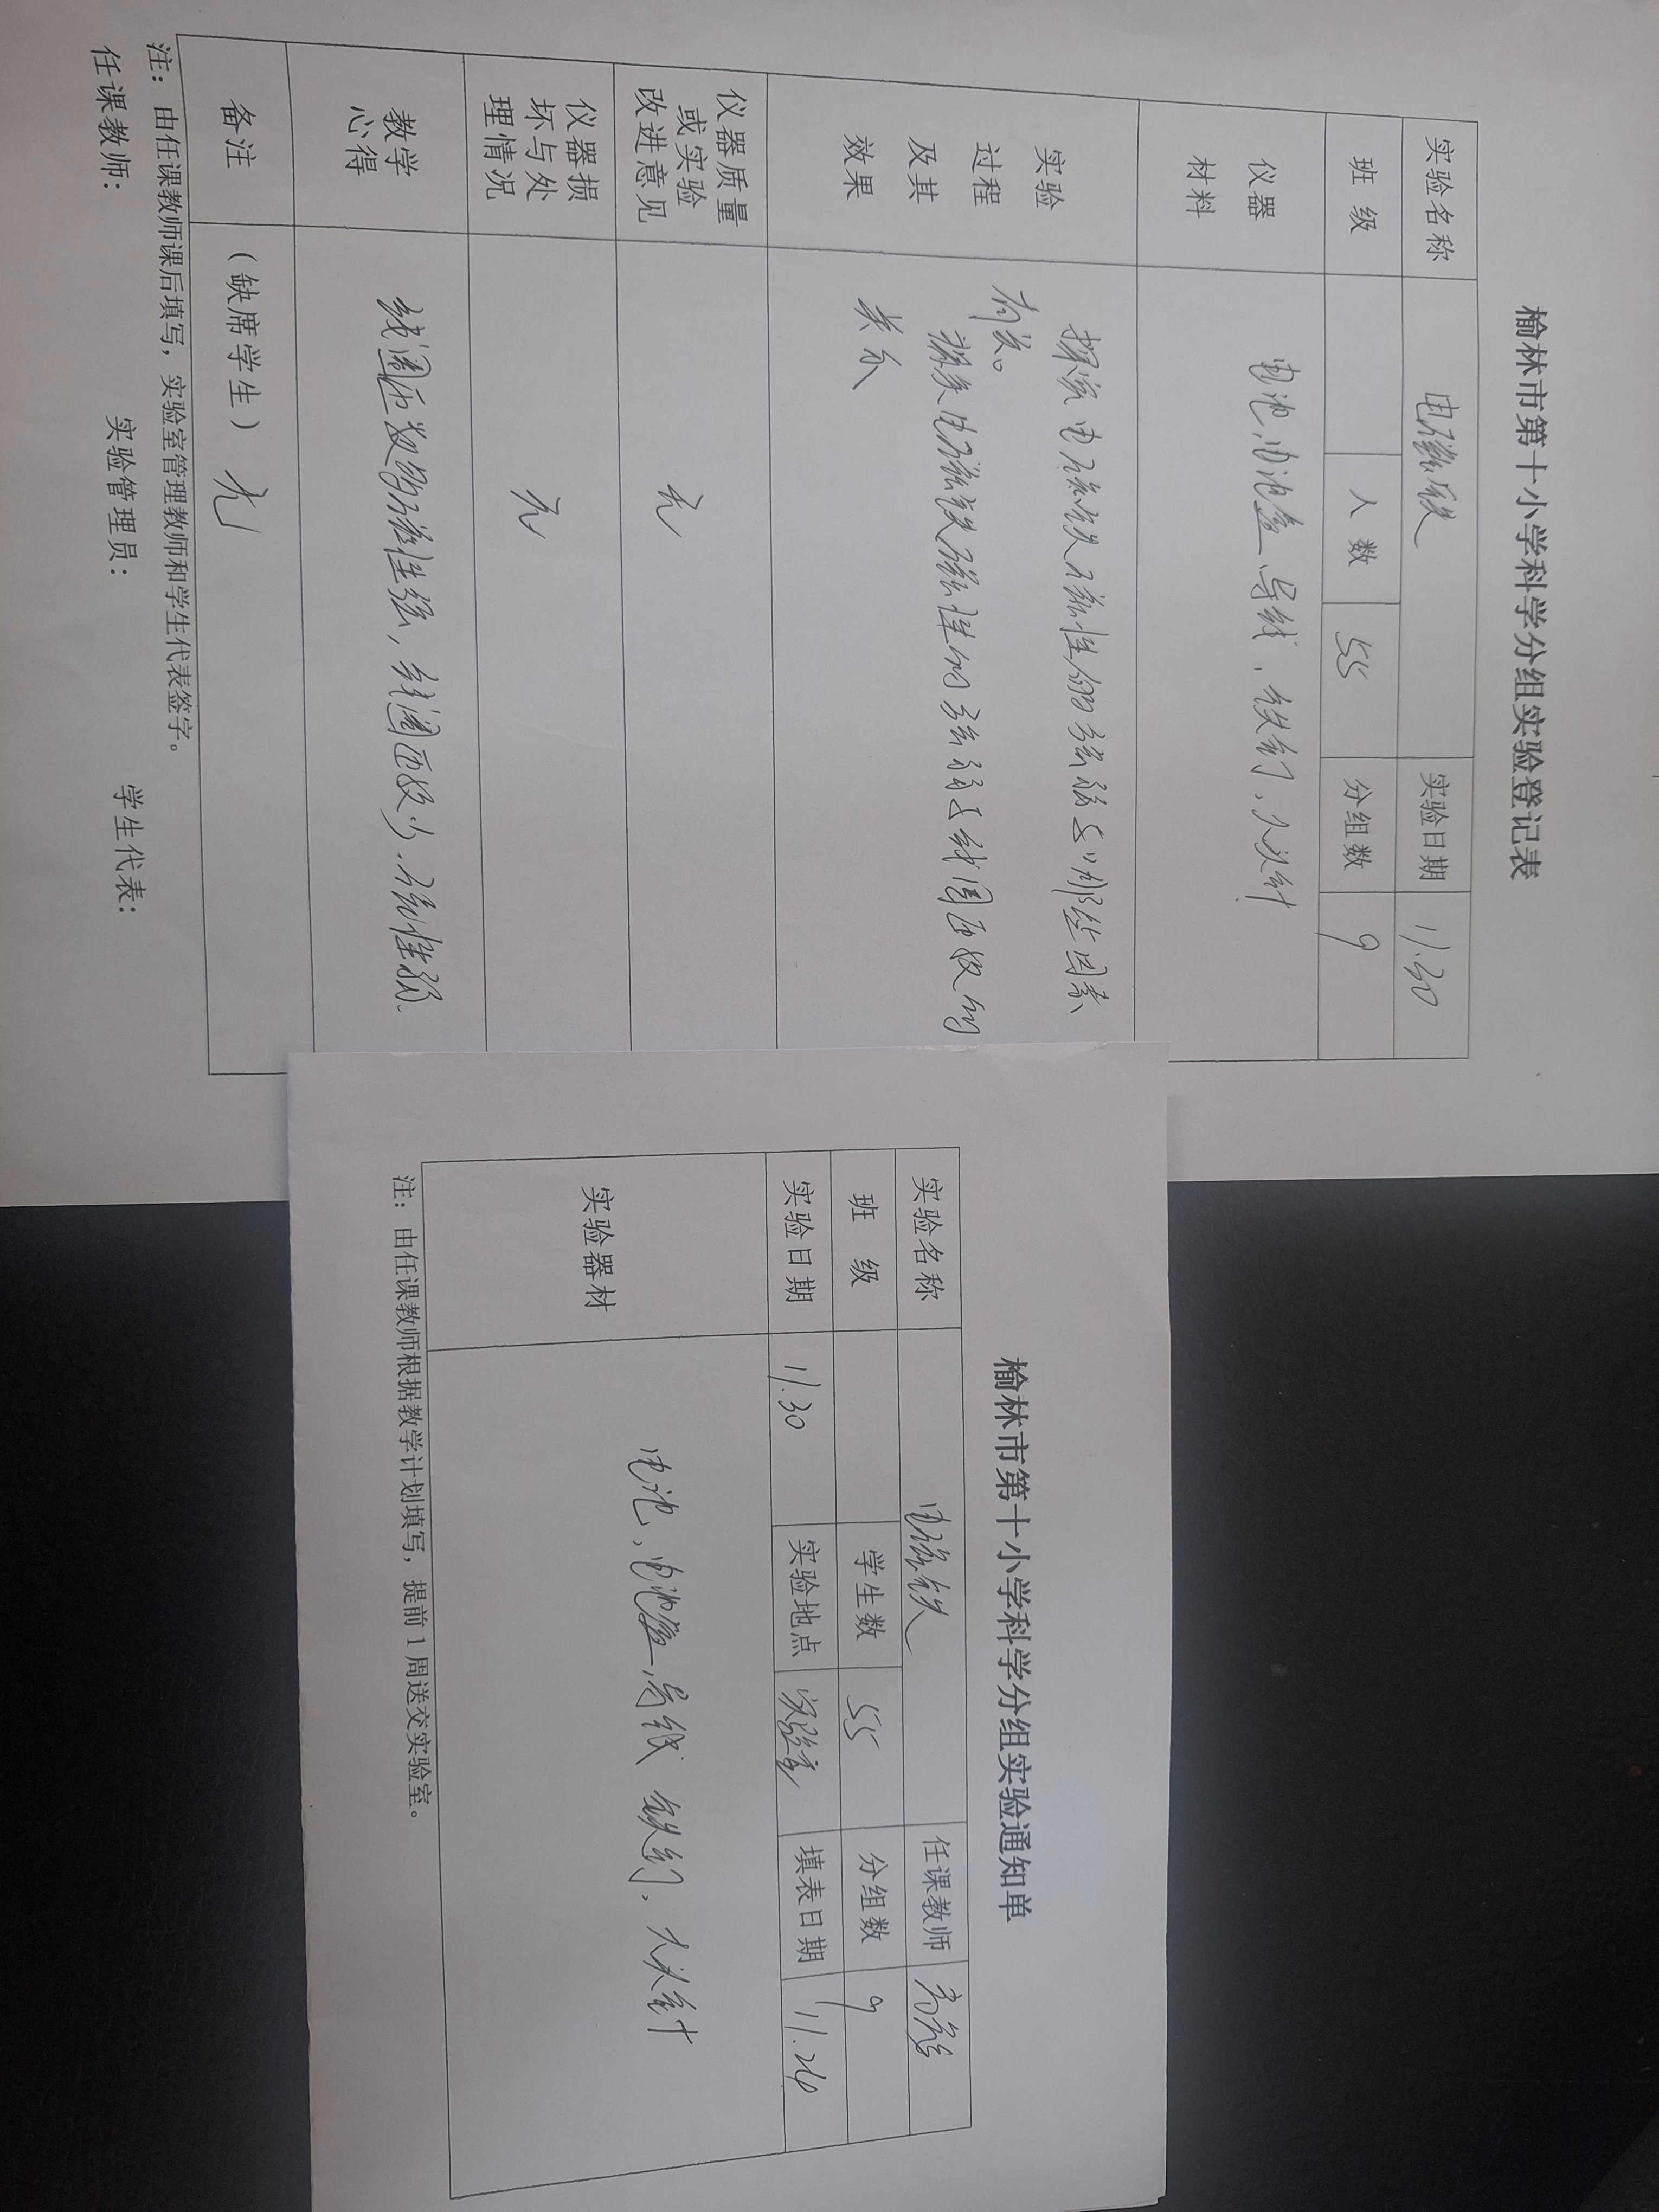 榆林市第十小学科学分组实验登记表
实验名称 电磁铁 实验日期 11.30
班级 人数 55 分组数 9
仪器材料 电池、电池盒、导线、铁钉、大头针
实验过程及其效果 探究电磁铁磁性的强弱与哪些因素
有关。
探究电磁铁磁性的强弱与线圈匝数的
关系
仪器质量或实验改进意见 无
仪器损坏与处理情况 无
教学心得 线圈匝数多磁性强，线圈匝数少，磁性弱
备注 （缺席学生） 无
注：由任课教师课后填写，实验室管理教师和学生代表签字。
任课教师： 实验管理员： 学生代表：
榆林市第十小学科学分组实验通知单
实验名称 电磁铁 任课教师
班级 学生数 55 分组数 9
实验日期 11.30 实验地点 实验室 填表日期 11.24
实验器材 电池，电池盒，导线 铁钉，大头针
注：由任课教师根据教学计划填写，提前1周送交实验室。